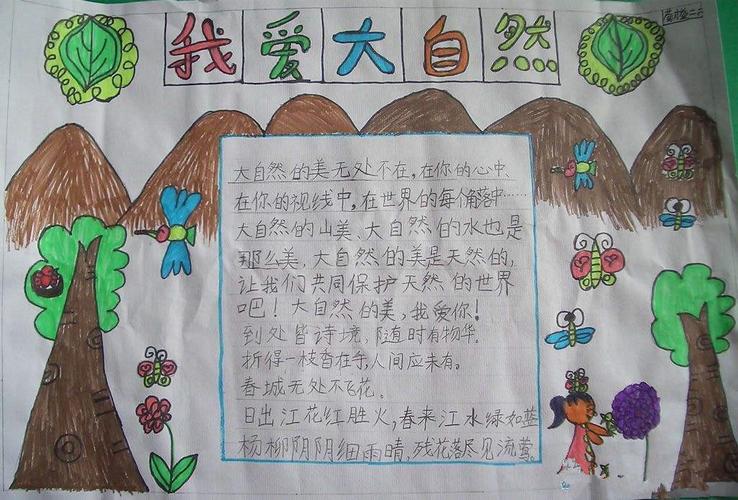 我爱大自然
大自然的美无处不在,在你的心中、
在你的视线中,在世界的每个角落中……
大自然的山美、大自然的水也是
那么美,大自然的美是天然的,
让我们共同保护天然的世界
吧！大自然的美,我爱你！
到处皆诗境,随时有物华。
折得一枝香在手,人间应未有。
春城无处不飞花。
日出江花红胜火,春来江水绿如蓝
杨柳阴阴细雨晴,残花落尽见流莺。